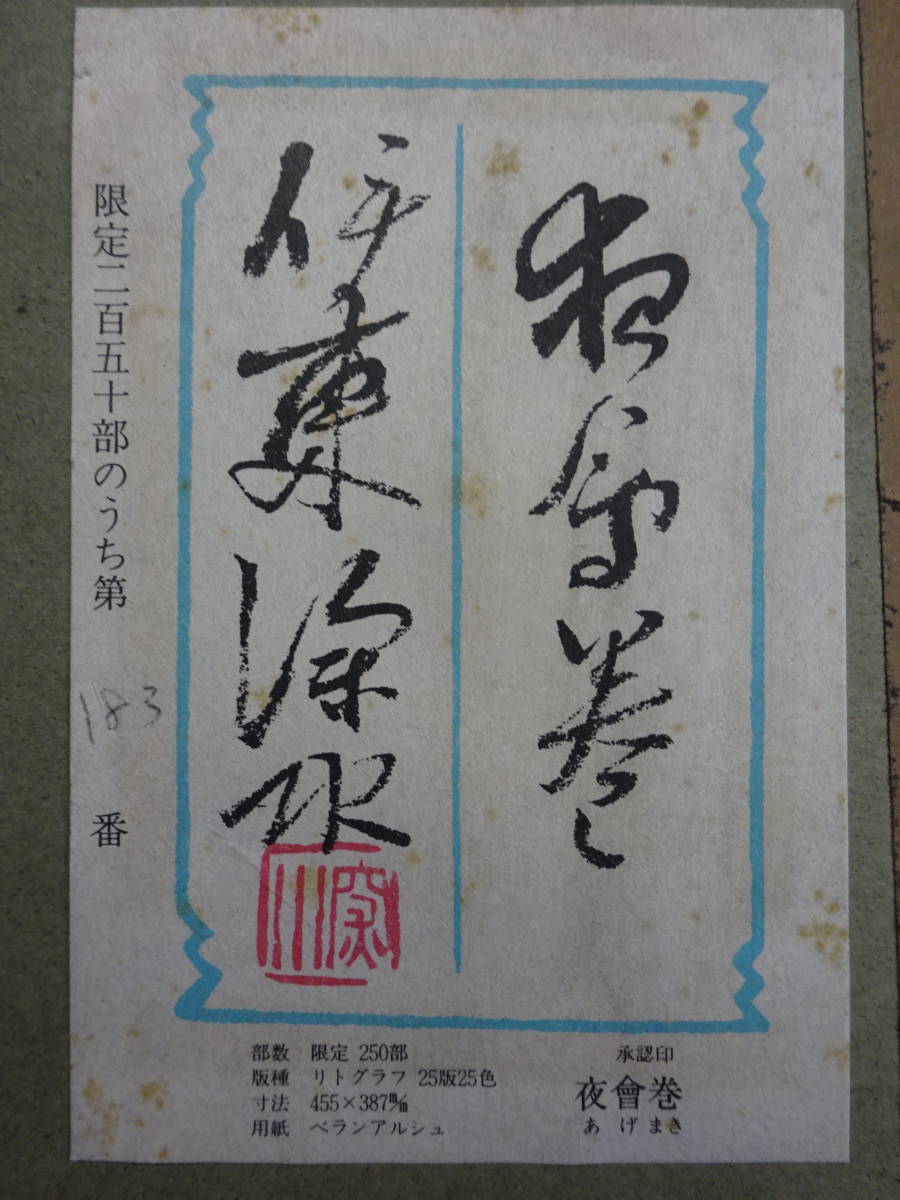 夜會巻
伊東深水
深水
限定二百五十部のうち第
183
番
部数 限定 250部
版種 リトグラフ 25版25色
寸法 455×387㎜
用紙 ベランアルシュ
承認印
夜會巻
あげまき